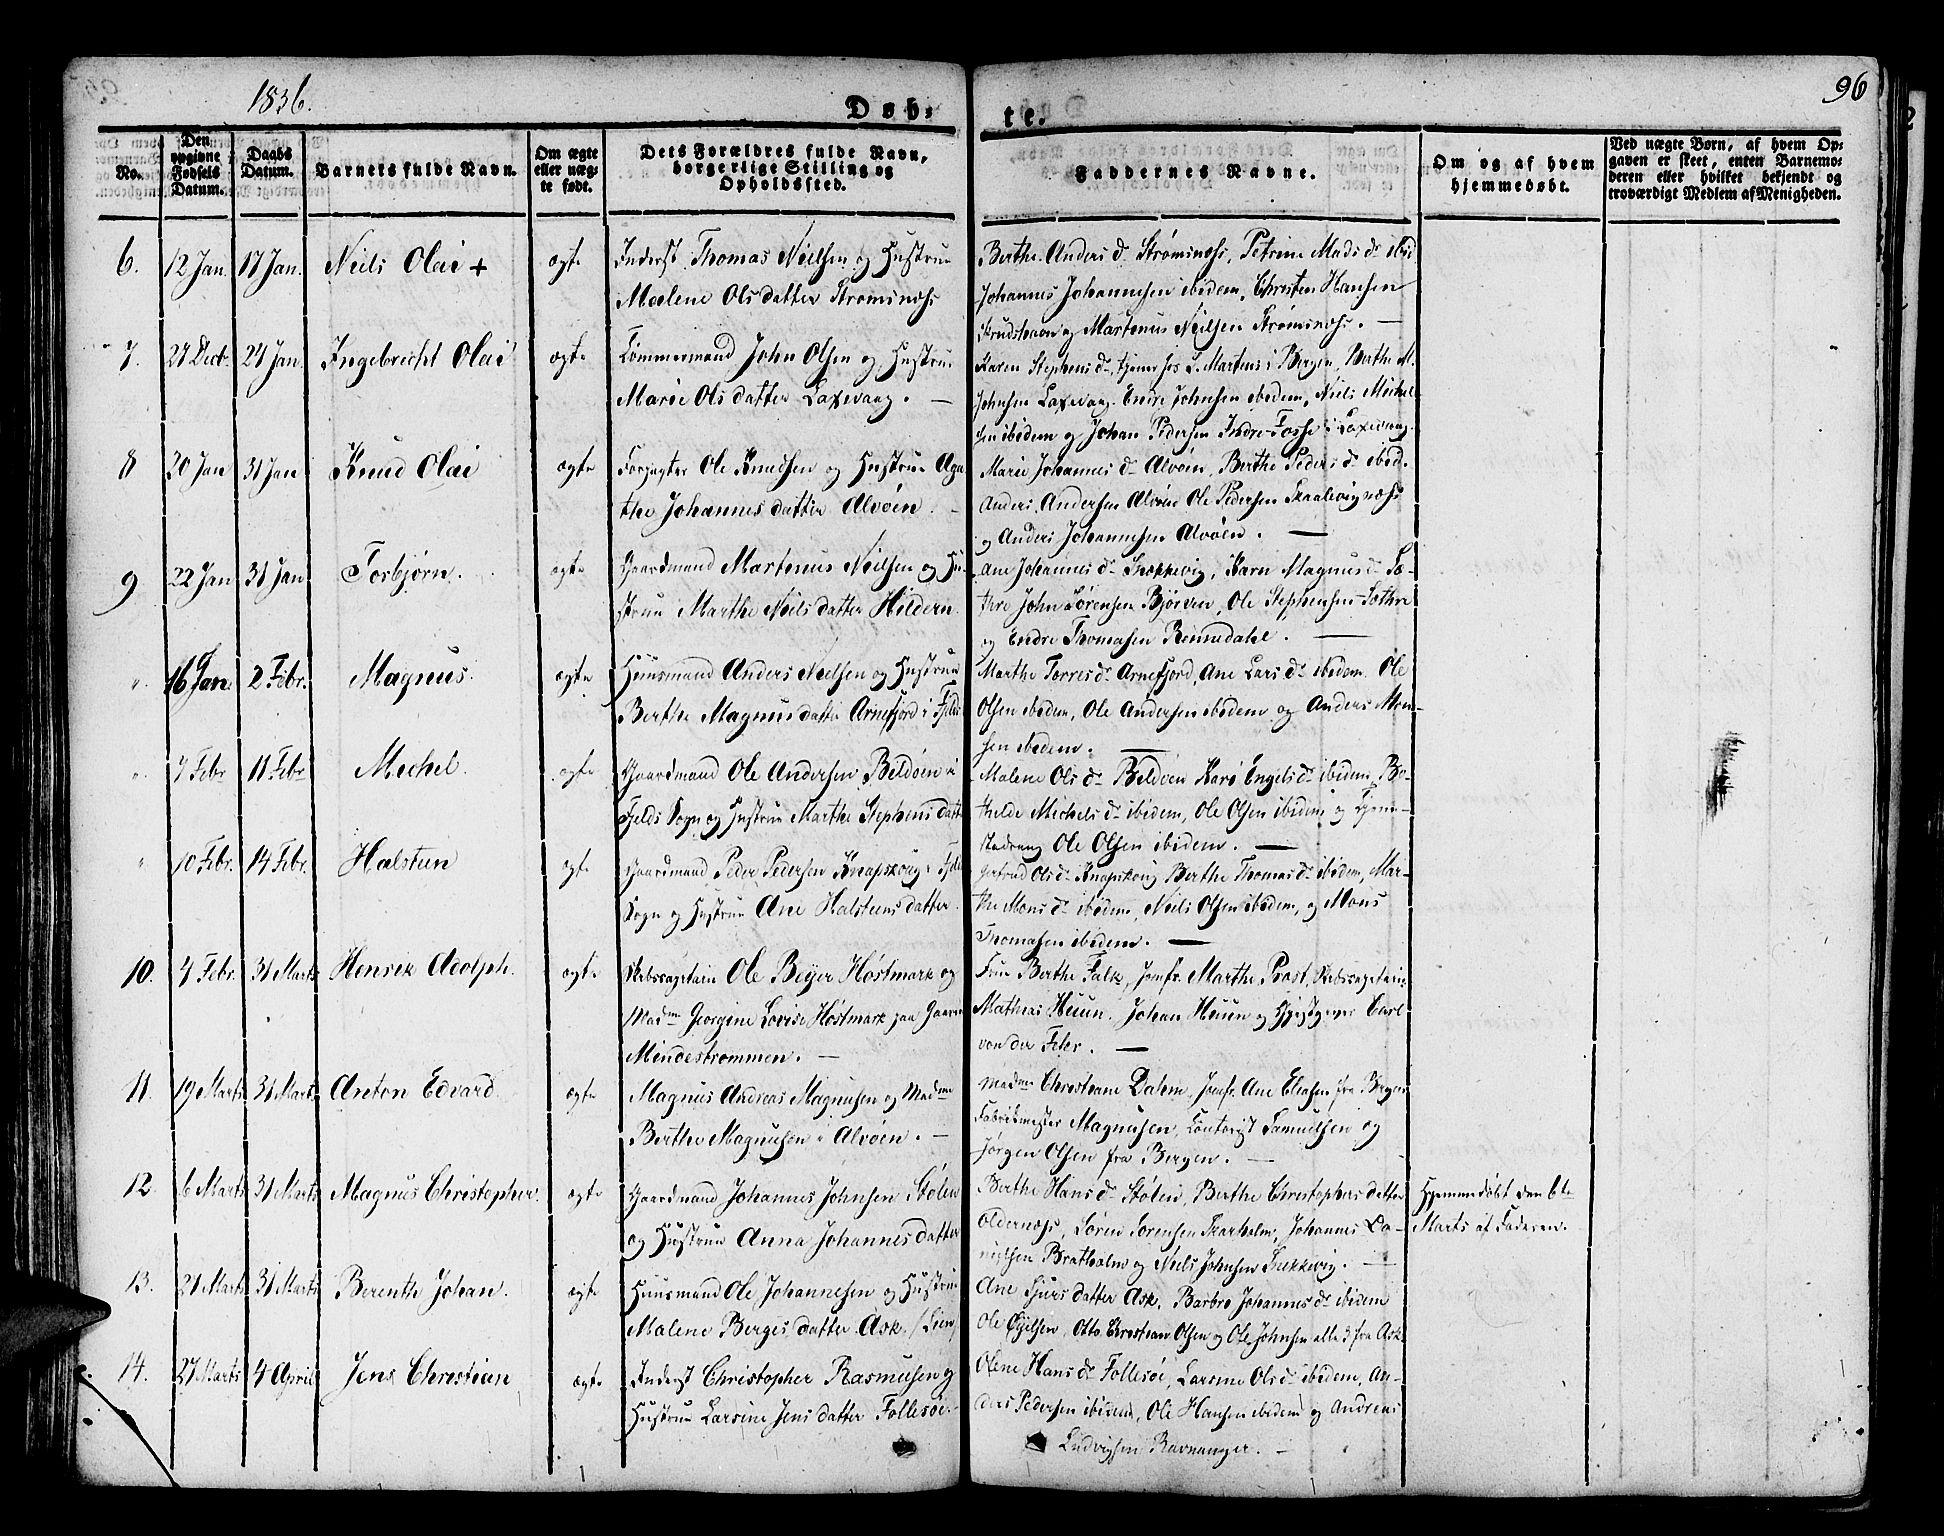 1836.
Døb-
te.
96
No.
Den opgivne Fødsels Datum.
Daabs Datum.
Barnets fulde Navn.
Om ægte eller uæg-te født.
Dets Forældres fulde Navn, borgerlige Stilling og Opholdssted.
Faddernes Navne.
Om og af hvem hjemmedøbt.
Ved uægte Børn, af hvem Op-gaven er skeet, enten Barnemo-deren eller hvilket bekjendt og troværdigt Medlem af Menigheden.
6. 12 Jan. 17 Jan. Niels Olai + ægte Inderst Thomas Nielsen og Hustrue
Malene Olsdatter Strømsnæss
Berthe Anders dr Strømsnæss, Petrine Mads dr ibid
Johannes Johannesen ibidem, Christen Hansen
Skrudshavn og Martinus Nielsen Strømsnæss.
7. 27 Decb. 24 Jan. Ingebrecht Olai ægte Tømmermand John Olsen og Hustrue
Marie Olsdatter Laxevaag.
Karen Stephens dr tjener hos L. Martens i Bergen, Berthe M.
Johnsen Laxevaag. Endre Johnsen ibidem, Niels Michel-
sen ibidem og Johan Pedersen Indre-Fosse i Laxevaag.
8 20 Jan 31 Jan Knud Olai ægte Forpagter Ole Knudsen og Hustrue Aga
the Johannesdatter Alvøen.
Marie Johannes dr Alvøen, Berthe Peders dr ibid.
Anders Andersen Alvøen Ole Pedersen Skaalevignæss
og Anders Johannesen Alvøen.
9 22 Jan 31 Jan Torbjørn. ægte Gaardmand Martinus Nielsen og Hu-
strue Marthe Nielsdatter Hildern.
Ane Johannes dr Snekkevig, Karn Magnus dr Sæ-
thre John Sørensen Bjørven, Ole Stephensen Sæthre
og Endre Thomasen Rennedahl.
" 16 Jan. 2 Febr. Magnus. ægte Huusmand Anders Nielsen og Hustrue
Berthe Magnusdatter Arnefjord i Fjeld
Marthe Torres dr Arnefjord, Ane Lars dr ibidem. Ole
Olsen ibidem, Ole Andersen ibidem og Anders Mon-
sen ibidem.
" 7 Febr 11 Febr Mechel. ægte Gaardmand Ole Andersen Beldøen i
Fjelds Sogn og Hustrue Marthe Stephensdatter
Malene Ols dr Beldøen Kari Engels dr ibidem, Bo-
thilde Michels dr ibidem, Ole Olsen ibidem og Tjene-
stedreng Ole Olsen ibidem.
" 10 Febr. 14 Febr. Halsteen ægte Gaardmand Peder Pedersen Knapskoug i Fjeld
Sogn og Hustrue Ane Halsteensdatter.
Gertrud Ols dr Knapskoug Berthe Thomas dr ibidem, Mar-
the Mons dr ibidem, Niels Olsen ibidem, og Mons
Thomasen ibidem.
10. 4 Febr. 31 Marts Henrik Adolph. ægte Skibscapitain Ole Beyer Høstmark og
Madm Georgine Lovise Høstmark paa Gaarden
Mindestrømmen.
Frue Berthe Falk, Jomfr. Marthe Prost, Skibscapitain
Mathias Heuun, Johan Heuun og Gjestgiver Carl
von der Fehr.
11. 19 Marts 31 Marts Anton Edvard ægte Magnus Andreas Magnusen og Madme
Berthe Magnusen i Alvøen.
Madme Christiane Dahm, Jomfr. Ane Eliasen fra Bergen
Fabrikmester Magnusen, Contorist Samuelsen og
Jørgen Olsen fra Bergen.
12. 6 Marts 31 Marts Magnus Christopher. ægte Gaardmand Johannes Johnsen Stølen
og Hustrue Anna Johannesdatter
Berthe Hans dr Stølen, Berthe Christophersdatter
Oldernæss, Søren Sørensen Skarholm, Johannes Da-
nielsen Bratholm og Niels Johnsen Snekkevig.
Hjemmedøbt den 6te
Marts af Faderen.
13. 21 Marts 31 Marts Berenth Johan. ægte Huusmand Ole Johannesen og Hustrue
Malene Bergesdatter Ask, (Lien)
Ane Sjursdatter Ask, Barbro Johannes dr ibidem
Ole Egilsen, Otto Christian Olsen og Ole Johnsen alle 3 fra Ask
14. 27 Marts 4 April Jens Christian ægte Inderst Christopher Rasmusen og
Hustrue Larsine Jensdatter Follesøe.
Olene Hans dr Follesøe, Larsine Ols dr ibidem, An-
ders Pedersen ibidem, Ole Hansen ibidem og Andreas
Ludvigsen Ravnanger.